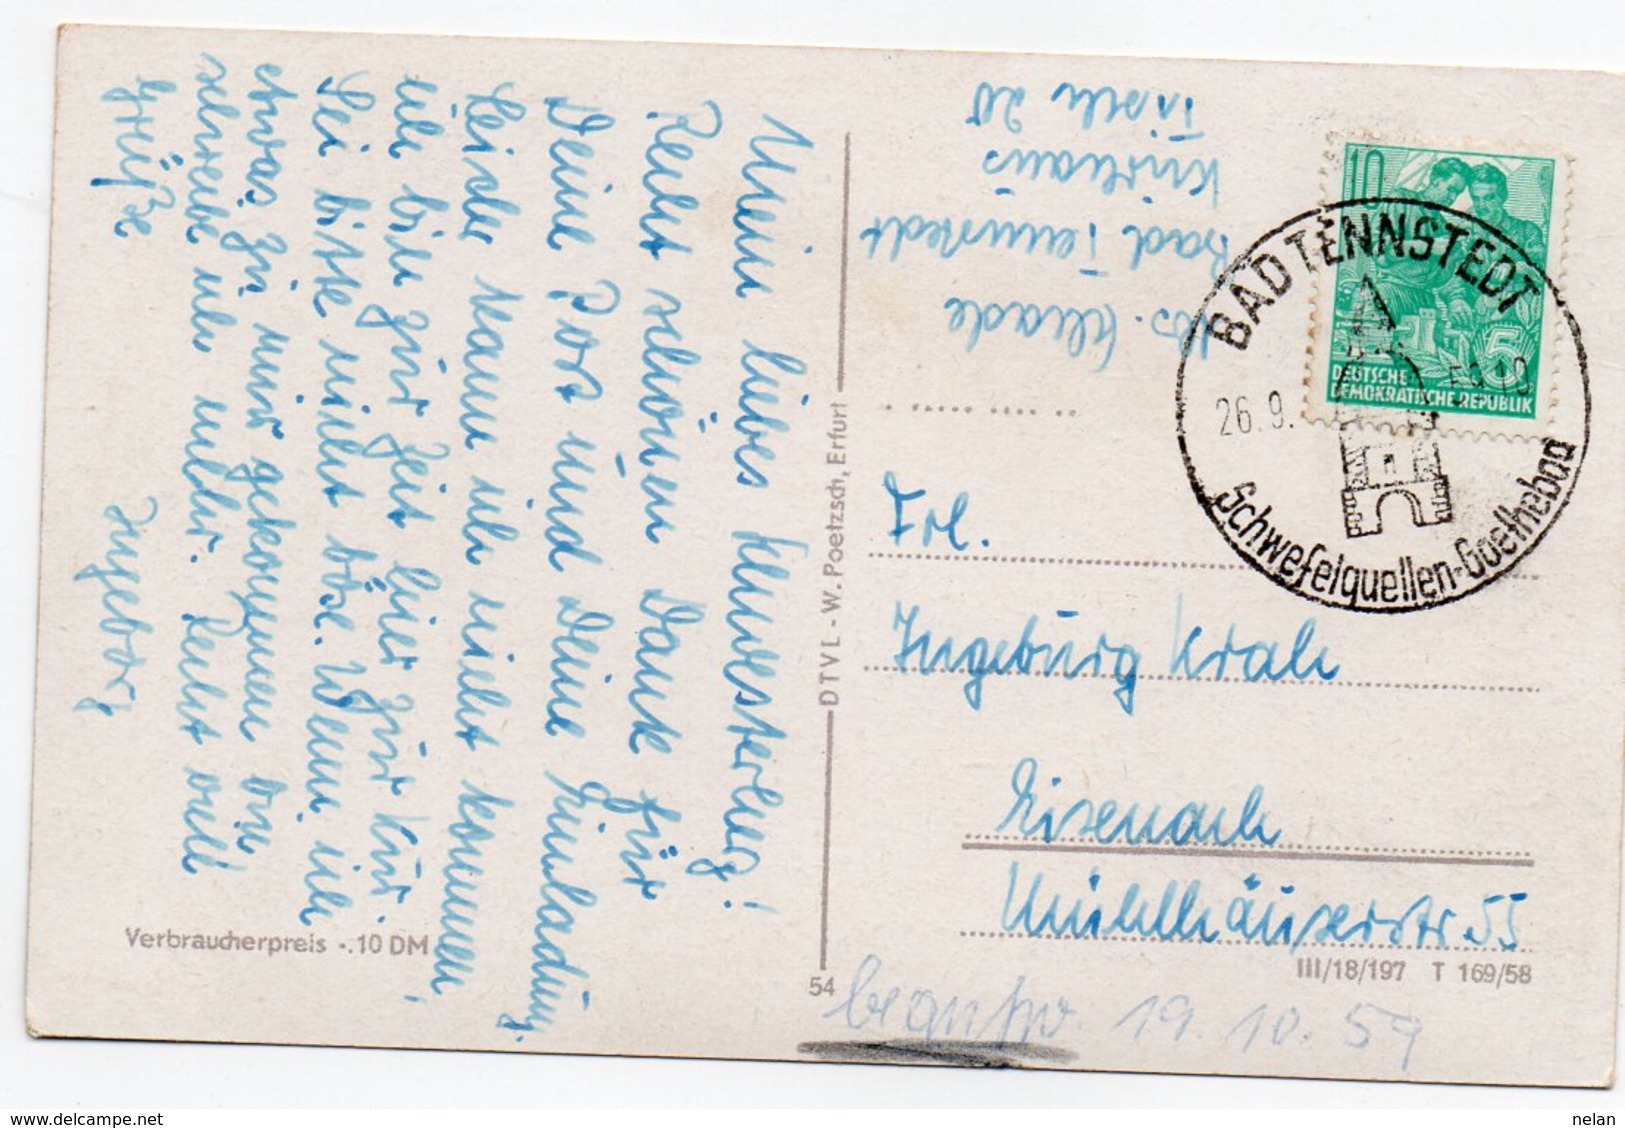 Mein liebes Klunkesterlag!
Recht schönen Dank für
Deine Post und Deine Einladung.
Leider kann ich nicht kommen,
ich bin zur Zeit hier zur Kur.
Sei bitte nicht böse. Wenn ich
etwas zu mir gekommen bin
schreibe ich mehr. Recht viele
Grüße
Ingeborg
Verbraucherpreis -.10 DM
DTVL - W. Poetzsch, Erfurt
54
Abs.
Bad Tennstedt
Kurhaus
Tisch 20
10
5
DEUTSCHE
DEMOKRATISCHE REPUBLIK
BAD TENNSTEDT
26.9.
Schwefelquellen-Goethebad
Frl.
Ingeburg Krah
Eisenach
Mühlhäuserstr. 55
III/18/197 T 169/58
beantw. 19.10.59
delcampe.net
nelan